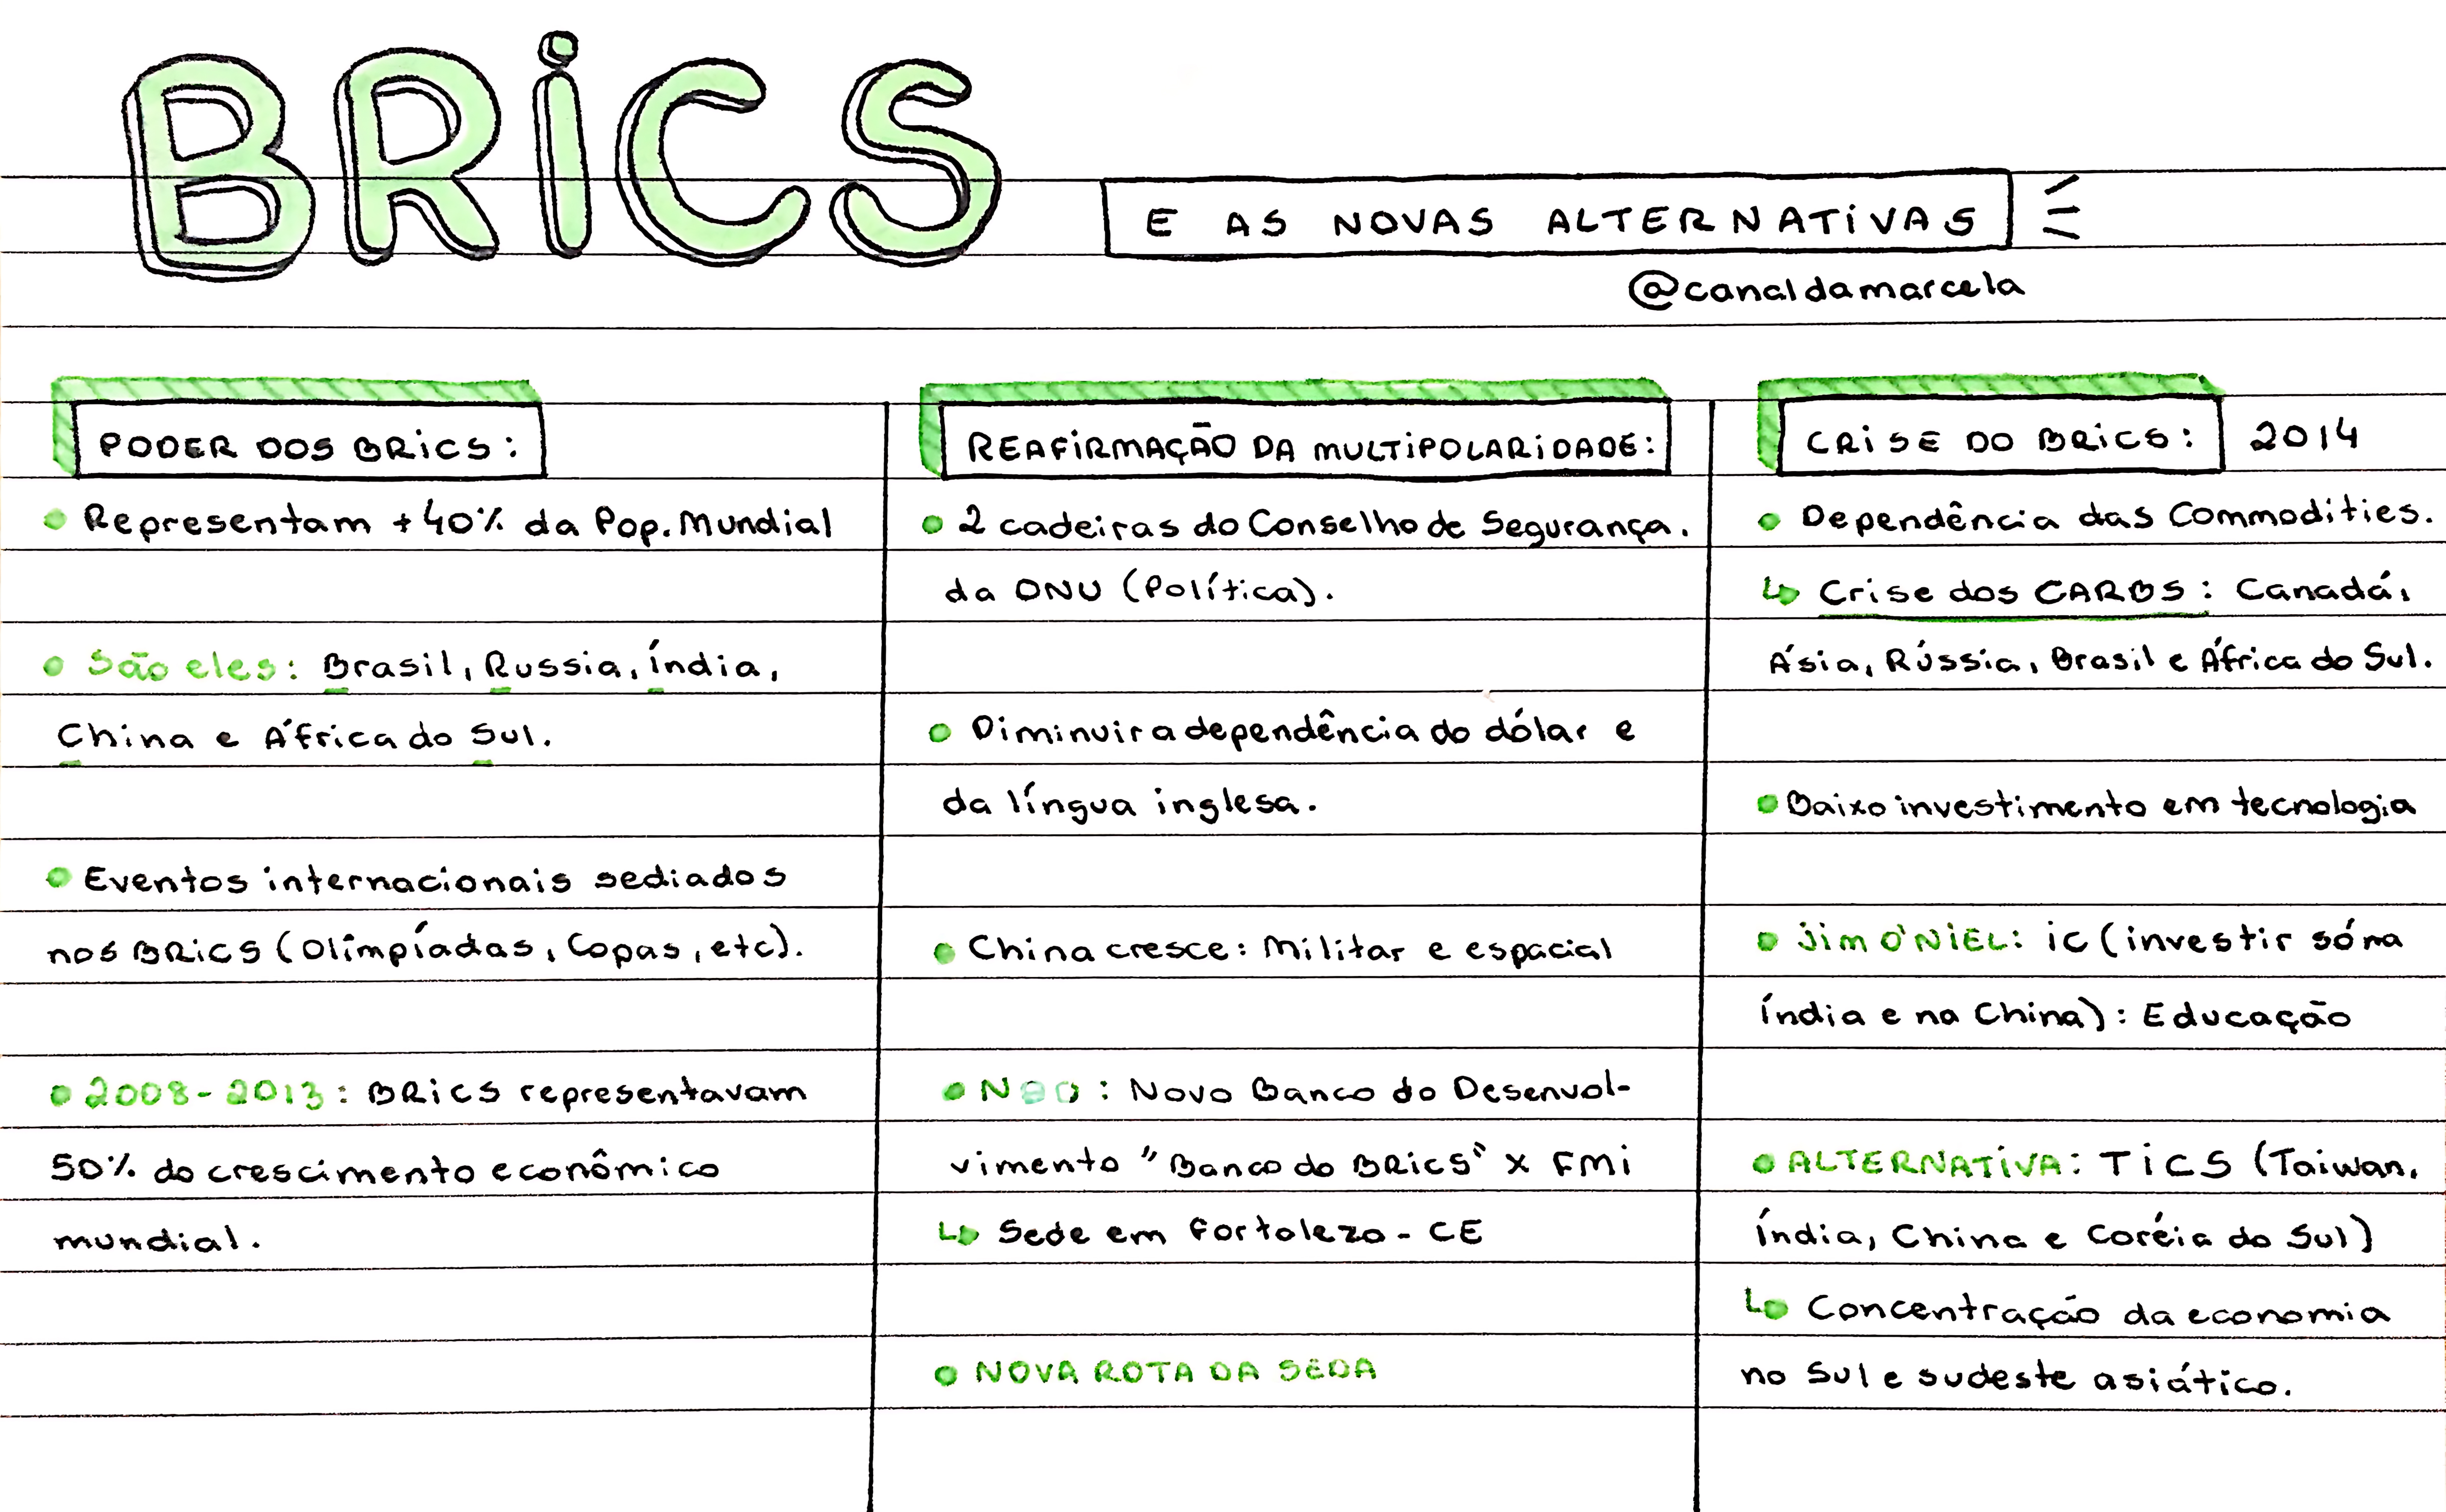 BRiCS
E AS NOVAS ALTERNATiVAS
@canaldamarcela
PODER DOS BRiCS:
• Representam +40% da Pop. Mundial
• São eles: Brasil, Russia, Índia,
China e África do Sul.
• Eventos internacionais sediados
nos BRiCS (Olimpíadas, Copas, etc).
• 2008-2013: BRiCS representavam
50% do crescimento econômico
mundial.
REAFiRMAÇÃO DA MULTiPOLARiDADE:
• 2 cadeiras do Conselho de Segurança.
da ONU (Política).
• Diminuir a dependência do dólar e
da língua inglesa.
• China cresce: Militar e espacial
• NBD: Novo Banco do Desenvol-
vimento "Banco do BRiCS" x FMi
↳ Sede em Fortaleza - CE
• NOVA ROTA DA SEDA
CRiSE DO BRiCS: 2014
• Dependência das Commodities.
↳ Crise dos CARBS: Canadá,
Ásia, Rússia, Brasil e África do Sul.
• Baixo investimento em tecnologia
• JiM O'NiEL: iC (investir só na
Índia e na China): Educação
• ALTERNATiVA: TiCS (Taiwan,
Índia, China e Coréia do Sul)
↳ Concentração da economia
no Sul e sudeste asiático.